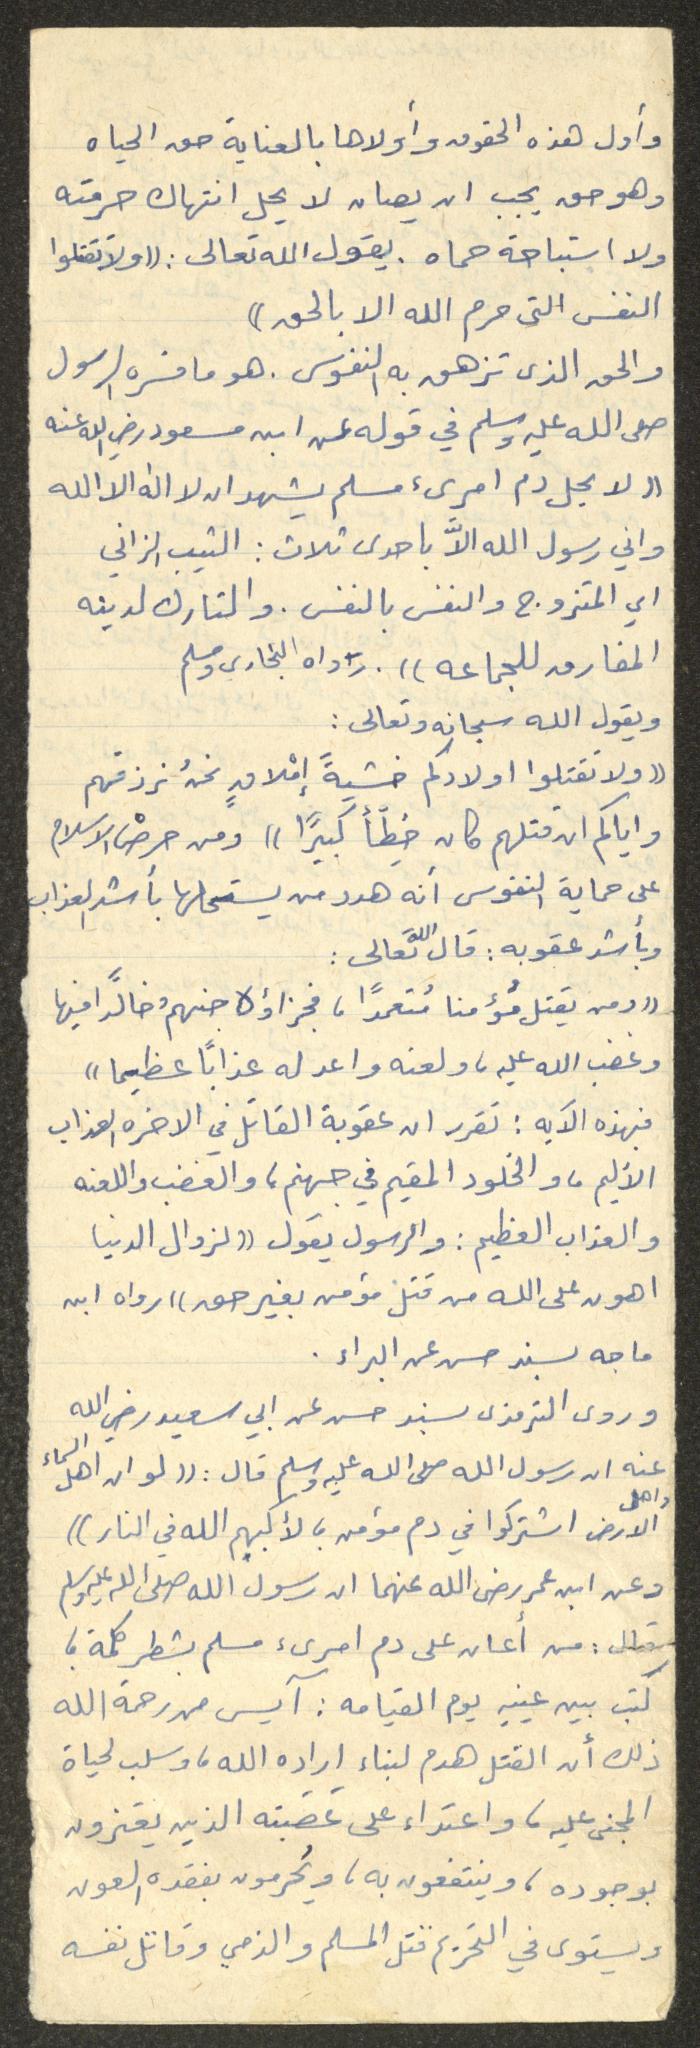 وأول هذه الحقوق وأولاها بالعناية حق الحياه
وهو حق يجب ان يصان لا يحل انتهاك حرمته
ولا استباحة حماه. يقول الله تعالى: ((ولا تقتلوا
النفس التى حرم الله الا بالحق))
والحق الذى تزهق به النفوس. هو ما فسره الرسول
صلى الله عليه وسلم في قوله عن ابن مسعود رضي الله عنه
((لا يحل دم امرىء مسلم يشهد ان لا اله الا الله
واني رسول الله الاَّ باحدى ثلاث: الثيب الزاني
اي المتزوج والنفس بالنفس. والتارك لدينه
المفارق للجماعه)). رواه البخارى ومسلم
ويقول الله سبحانه وتعالى:
((ولا تقتلوا اولادكم خشيةَ إمْلاقٍ نحنُ نرزقهم
واياكم ان قتلهم كان خِطَأً كبيرًا)) ومن حرص الاسلام
على حماية النفوس أنه هدد من يستحلها بأشد العذاب
وبأشد عقوبه: قال الله تعالى:
((ومن يقتل مُؤمنا مُتعمدًا، فجزاؤه جنهم خالدًا فيها
وغضب الله عليه، ولعنه واعد له عذابًا عظيما))
فبهذه الآيه: تقرر ان عقوبة القاتل في الاخره العذاب
الأليم، والخلود المقيم في جهنم، والغضب واللعنه
والعذاب العظيم: والرسول يقول ((لزوال الدنيا
اهون على الله من قتل مؤمن بغير حق)) رواه ابن
ماجه بسند حسن عن البراء.
وروى الترمذى بسند حسن عن ابي سعيد رضي الله
عنه ان رسول الله صلى الله عليه وسلم قال: ((لو ان اهل السماء
واهل الأرض اشتركوا في دم مؤمن، لأكبهم الله في النار))
وعن ابن عمر رضى الله عنهما ان رسول الله صلى الله عليه وسلم
قال: من أعان على دم امرىء مسلم بشطر كلمة،
كتب بين عينيه يوم القيامه: آيس من رحمة الله
ذلك أن القتل هدم لبناء اراده الله، وسلب لحياة
المجنى عليه، واعتداء على عَصَبته الذين يعتزون
بوجوده، وينتفعون به، ويُحرمون بفقده العون
ويستوى في التحريم قتل المسلم والذمي وقاتل نفسه